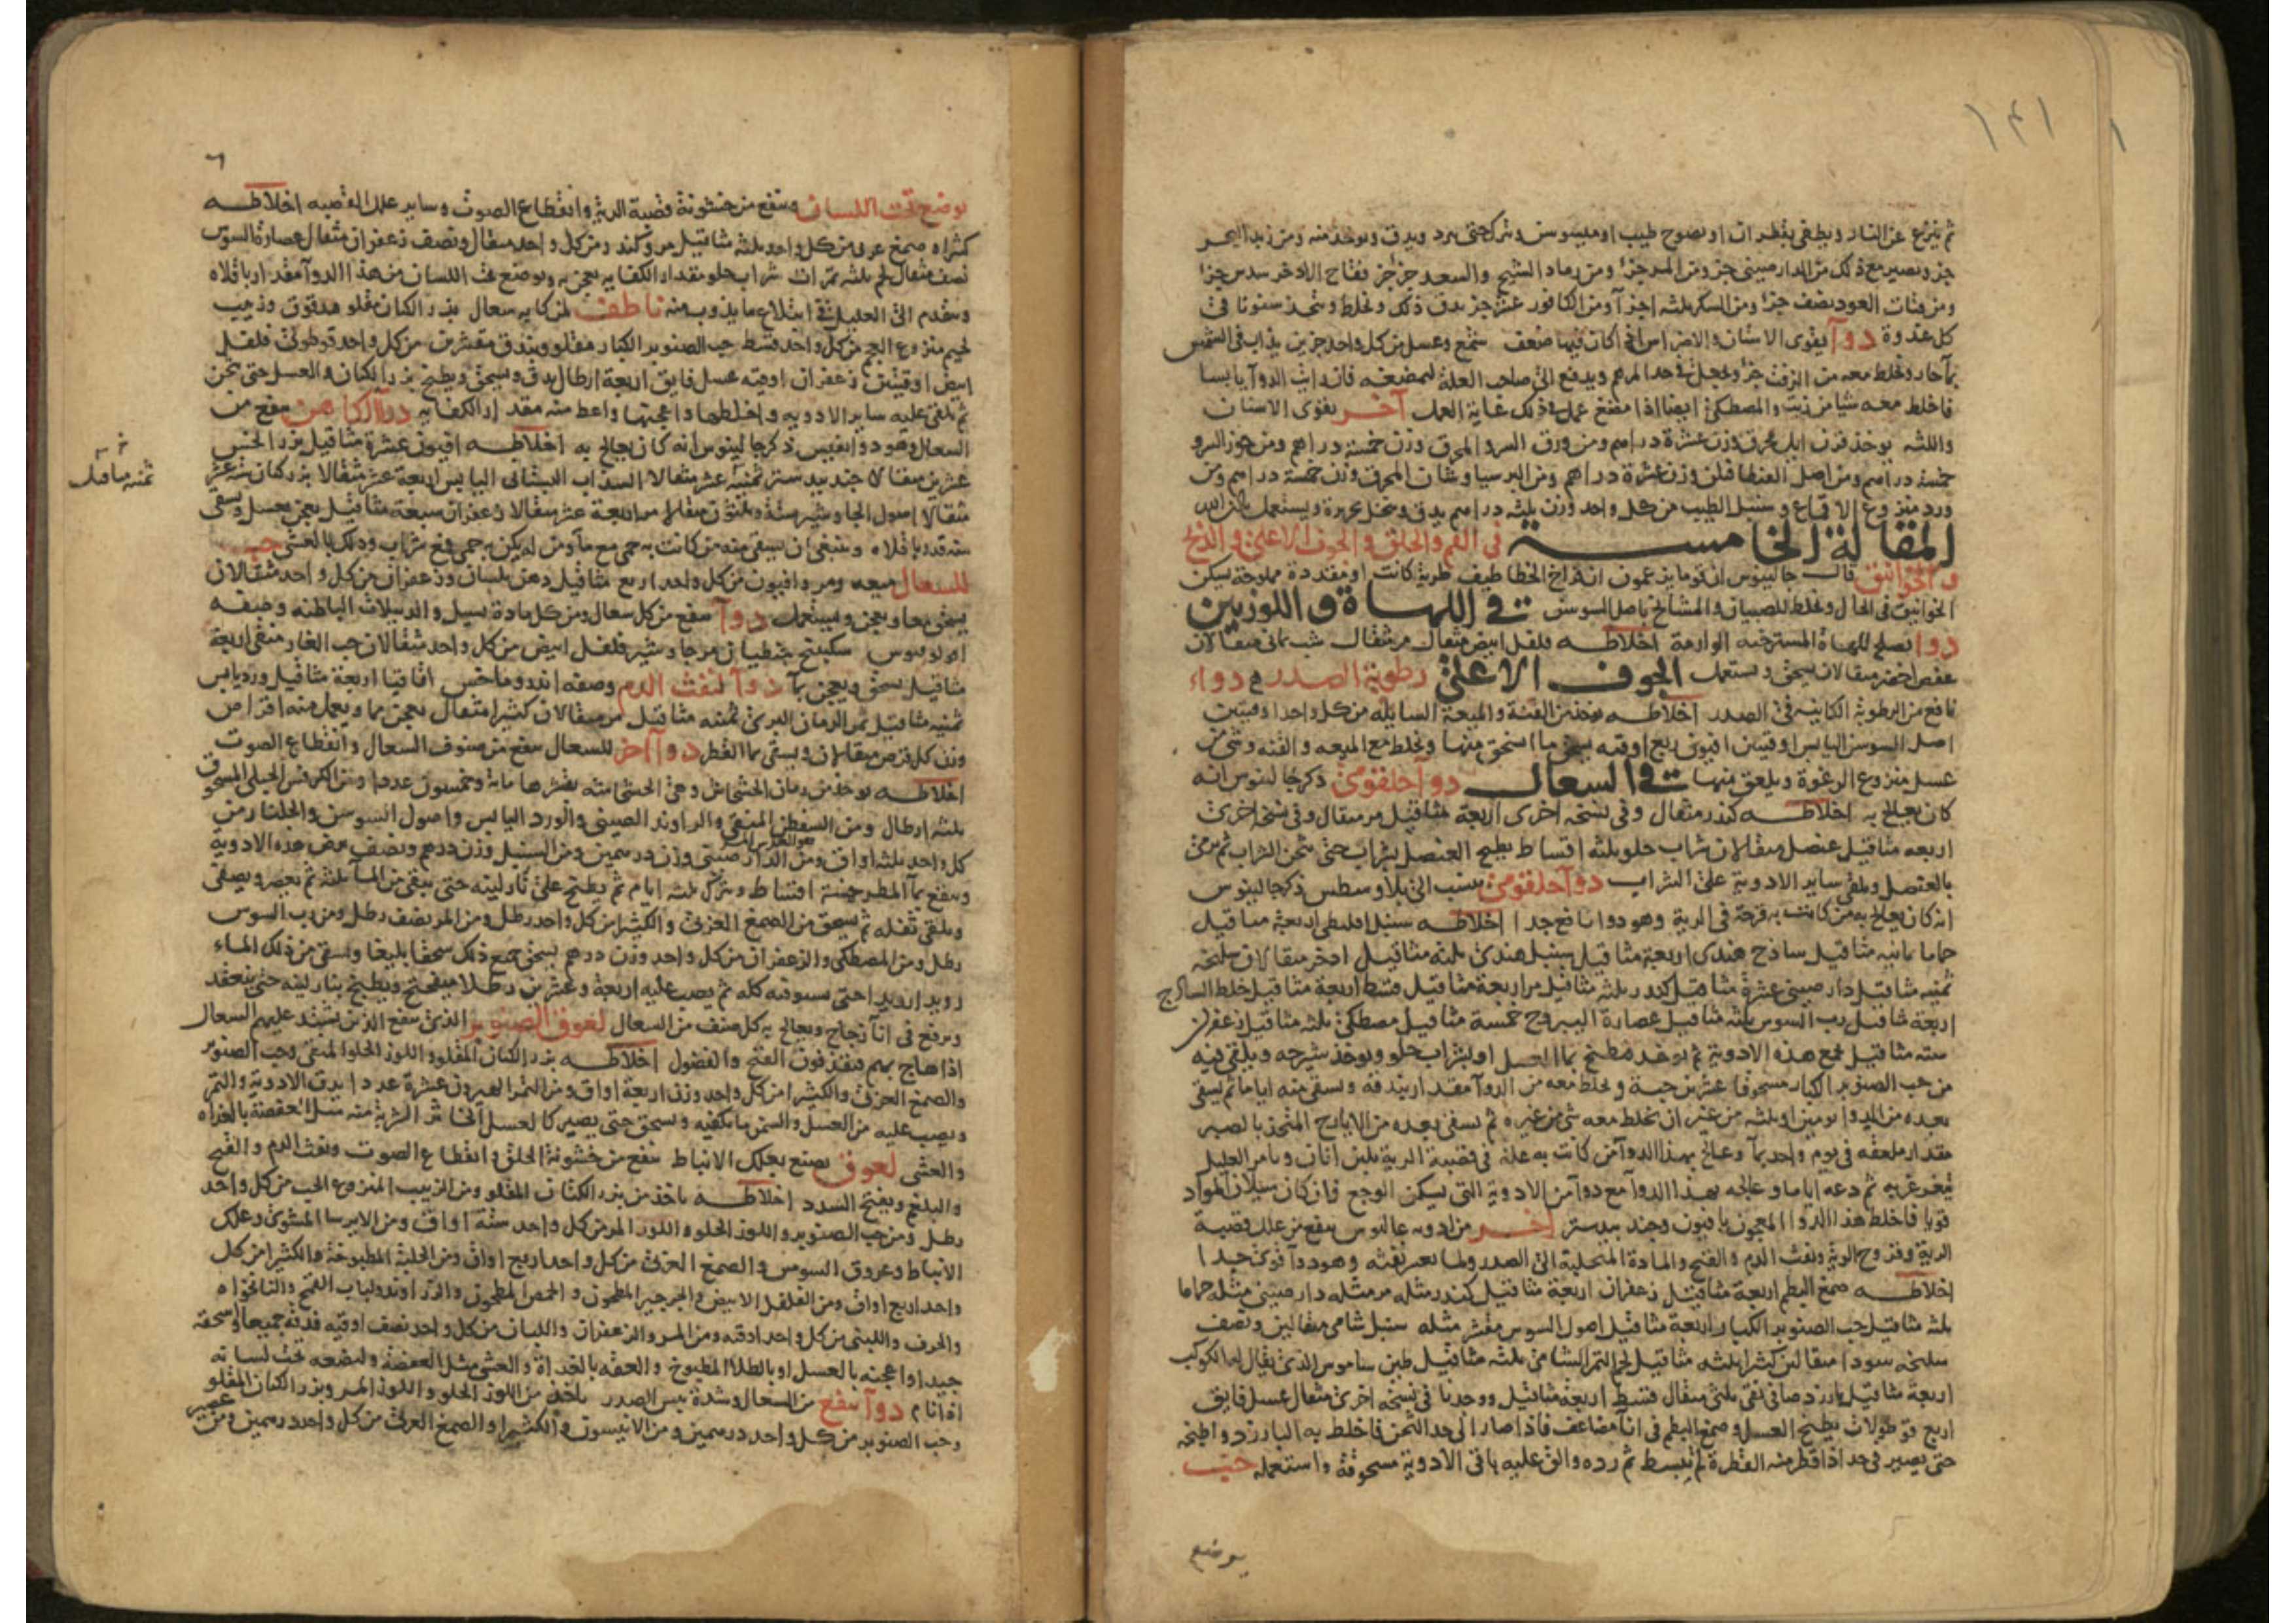 ١٤١
ثم ينزع عن النار ويطفى بقطران او نضوح طيب او ميسوس ويترك حتى يبرد ويدق ويوخذ منه ومن زبد البحر
جز ويصير مع ذلك من الدارصيني جز ومن المر جزا ومن رماد الشيح والسعد جز جز فقاح الاذخر سدس جزا
ومن فتات العود نصف جزا ومن السكر ثلثه اجزآ ومن الكافور عشر جز يدق ذلك ويخلط ويتخذ سنونا في
كل غدوة دوآ يقوى الاسنان والاضراس اذا كان فيها ضعف شمع وعسل من كل واحد جزين يذاب في الشمس
بمآ حار ويخلط معه من الزفت جزا ويجعل في حد المرهم ويدفع الى صاحب العلة ليمضغه فان اذيب الدوآ يابسا
فاخلط معه شيا من زيت والمصطكى ايضا اذا مضغ عمل في ذلك غاية العمل آخر يقوى الاسنان
واللثه يوخذ قرن ايل محرق وزن عشرة دراهم ومن ورق السرو المحرق وزن خمسة دراهم ومن جوز السرو
خمسة دراهم ومن اصل الفنطافلن وزن عشرة دراهم ومن البرسياوشان المحرق وزن خمسة دراهم ومن
ورد منزوع الاقماع وسنبل الطيب من كل واحد وزن ثلثه دراهم يدق وينخل بحريرة ويستعمل
المقالة الخامسة في الفم والحلق والجوف الاعلى والذبح
والخوانيق قال جالينوس ان قوما يزعمون ان فراخ الخطاطيف طرية كانت او مقددة مملوحة يسكن
الخوانيق في الحال ويخلط للصبيان والمشائخ باصل السوسن في اللهاة واللوزتين
دوا يصلح للهاة المسترخيه الوارمة اخلاطه فلفل ابيض مثقال مر مثقال شب يماني مثقالان
عفص اخضر مثقالان يسحق ويستعمل الجوف الاعلى رطوبة الصدر دواء
نافع من الرطوبة الكاينه في الصدر اخلاطه يوخذ من القنة والميعة السايله من كل واحد اوقيتين
اصل السوسن اليابس اوقيتين افيون ربع اوقيه يسحق ما انسحق منها ويخلط مع الميعه والقنه وشي من
عسل منزوع الرغوة ويلعق منها في السعال دوآ حلقومي ذكر جالينوس انه
كان يعالج به اخلاطه كندر مثقال وفي نسخه اخرى اربعة مثاقيل مر مثقال وفي نسخه اخرى
اربعه مثاقيل عنصل مثقالان شراب حلو ثلثه اقساط يطبخ العنصل بشراب حتى يثخن الشراب ثم يرمى
بالعنصل ويلقى ساير الادوية على الشراب دوآ حلقومي ينسب الى بلاوسطس ذكر جالينوس
انه كان يعالج به من كانت به قرحة في الرية وهو دوا نافع جدا اخلاطه سنبل اقليطي اربعة مثاقيل
حماما ثمانيه مثاقيل ساذج هندي اربعة مثاقيل سنبل هندي ثلثه مثاقيل اذخر مثقالان سليخه
ثمنيه مثاقيل دارصيني عشرة مثاقيل كندر ثلثه مثاقيل مر اربعة مثاقيل قسط اربعة مثاقيل خلط الساذج
اربعة مثاقيل رب السوس ثلثه مثاقيل عصارة اليبروح خمسة مثاقيل مصطكى ثلثه مثاقيل زعفران
سته مثاقيل تجمع هذه الادوية ثم يوخذ مطبخ بماء العسل او بشراب حلو ويوخذ شيرجه ويلقى فيه
من حب الصنوبر الكبار مسحوقا عشرين حبة ويخلط معه من الدوآ مقدار بندقه ويسقى منه اياما ثم يسقى
بعده من الدوا يومين او ثلثه من غير ان يخلط معه شى من غيره ثم يسقى بعده من الايارج المتخذ بالصبر
مقدار ملعقه في يوم واحد بمآ وعالج بهذا الدوآ من كانت به علة في قصبة الرية بلبن اتان ويامر العليل
يتغرغر به ثم دعه اياما وعالجه بهذا الدوآ مع دوآ من الادوية التي يسكن الوجع فان كان سيلان المواد
قويا فاخلط هذا الدوا المعجون بافيون وجند بيدستر آخر من ادويه جالينوس ينفع من علل قصبة
الرية وقروح الرية ونفث الدم والقيح والمادة المتحلبة الى الصدر ولما يعسر نفثه وهو دوآ قوي جدا
اخلاطه صمغ البطم اربعة مثاقيل زعفران اربعة مثاقيل كندر مثله مر مثله دارصيني مثله حماما
ثلثه مثاقيل حب الصنوبر الكبار اربعة مثاقيل اصول السوس مقشر مثله سنبل شامي مثقالين ونصف
سليخه سودا مثقالين كثيرا ثلثه مثاقيل لحم التمر الشامى ثلثه مثاقيل طين ساموس الذي يقال له الكوكب
اربعة مثاقيل بارزد صافي نقي ثلثي مثقال قسط اربعة مثاقيل ووجدنا في نسخه اخرى مثقال عسل فايق
اربع قوطولات يطبخ العسل وصمغ البطم في انآ مضاعف فاذا صار الى حد الثخن فاخلط به البارزد واطبخه
حتى يصير في حد اذا قطر منه القطرة لم تبسط ثم رده والق عليه باقي الادوية مسحوقة واستعمله حب
يوضع
يوضع تحت اللسان وينفع من خشونة قصبة الرية وانقطاع الصوت وساير علل القصبه اخلاطه
كثيراء صمغ عربي من كل واحد ثلثه مثاقيل مر وكندر ومن كل واحد مثقال ونصف زعفران مثقال عصارة السوس
نصف مثقال لحم ثلثه تمرات شراب حلو مقدار الكفايه يعجن به ويوضع تحت اللسان من هذا الدوآ مقدار باقلاه
ويتقدم الى العليل في ابتلاع ما يذوب منه ناطف لمن كان به سعال بزر الكتان مقلو مدقوق وزبيب
لحيم منزوع العجم من كل واحد قسط حب الصنوبر الكبار مقلو وبندق مقشرين من كل واحد قوطولى فلفل
ابيض اوقيتين زعفران اوقيه عسل فايق اربعة ارطال يدق ويسحق ويطبخ بزر الكتان والعسل حتى يثخن
ثم يلقى عليه ساير الادويه واخلطها واعجنها واعط منه مقدار الكفايه دوآ الكاهن ينفع من
السعال وهو دوا نفيس ذكر جالينوس انه كان يعالج به اخلاطه افيون عشرة مثاقيل بزر الخس
عشرين مثقالا جندبيدستر ثمنيه عشر مثقالا السذاب البستاني اليابس اربعة عشر مثقالا بزر كتان سته عشر
ثمنيه مثاقيل
مثقالا اصول الجاوشير ستة وثلثون مثقالا مر اربعة عشر مثقالا زعفران سبعة مثاقيل يعجن بعسل ويسقى
منه قدر باقلاه وينبغي ان يسقى منه من كانت به حمى مع مآ ومن لم يكن به حمى فمع شراب وذلك بالعشي حب
للسعال ميعه ومر وافيون من كل واحد اربع مثاقيل دهن بلسان وزعفران من كل واحد مثقالان
يسحق معا ويعجن ويستعمل دوآ ينفع من كل سعال ومن كل مادة تسيل والدبيلات الباطنه وصفه
سكبينج جنطيان مر جاوشير فلفل ابيض من كل واحد مثقالان حب الغار منقى اربعة
مثاقيل يسحق ويعجن بمآ دوآ لنفث الدم وصفه اندروماخس اقاقيا اربعة مثاقيل ورد يابس
ثمنيه مثاقيل ثمر الرمان البري ثمنيه مثاقيل مر مثقالان كثيرا مثقال يعجن بما ويعمل منه اقراص
وزن كل قرص مثقالان ويسقى بماء القطر دوآ آخر للسعال ينفع من صنوف السعال وانقطاع الصوت
اخلاطه يوخذ من رمان الخشخاش وهي الخشخاشه بقشرها ماية وخمسون عددا ومن الكرفس الجبلى المسحوق
ثلثه ارطال ومن السفطن المنقى والراوند الصيني والورد اليابس واصول السوسن والجلنار من
كل واحد ثلثه اواق ومن الدارصيني وزن درهمين ومن السنبل وزن درهم ونصف يرض هذه الادوية
وينقع بمآ المطر خمسة اقساط ويترك ثلثه ايام ثم يطبخ على نار لينه حتى يبقى من المآ ثلثه ثم يعصر ويصفى
ويلقى ثفله ثم يسحق من الصمغ العربي والكثيرا من كل واحد رطل ومن المر نصف رطل ومن رب السوس
رطل ومن المصطكى والزعفران من كل واحد وزن درهم يسحق جميع ذلك سحقا بليغا ويسقى من ذلك الماء
رويدا رويدا حتى يستوفيه كله ثم يصب عليه اربعة وعشرين رطلا ميفختج ويطبخ بنار لينه حتى ينعقد
ويرفع في انآ زجاج ويعالج به كل صنف من السعال لعوق الصنوبر الذي ينفع الذين يشتد عليهم السعال
اذا هاج بهم فيقذفون القيح والفضول اخلاطه بزر الكتان المقلو واللوز الحلو المنقى وحب الصنوبر
والصمغ العربي والكثيرا من كل واحد وزن اربعة اواق ومن التمر الهيرون عشرة عددا يدق الادوية والتمر
ويصب عليه من العسل والسمن ما يكفيه ويسحق حتى يصير كالعسل الخاثر الشربة منه مثل العفصة بالغداه
والعشى لعوق يصنع بعلك الانباط ينفع من خشونة الحلق وانقطاع الصوت ونفث الدم والقيح
والبلغم ويفتح السدد اخلاطه ياخذ من بزر الكتان المقلو ومن الزبيب المنزوع الحب من كل واحد
رطل ومن حب الصنوبر واللوز الحلو واللوز المر من كل واحد ستة اواق ومن الايرسا المشوى وعلك
الانباط وعروق السوس والصمغ العربي من كل واحد اربع اواق ومن الحلبة المطبوخة والكثيرا من كل
واحد اربع اواق ومن الفلفل الابيض والجرجير المطحون والحمص المطحون والزراوند ولباب القمح والنانخواه
والحرف واللبنى من كل واحد اوقيه ومن المر والزعفران واللبان من كل واحد نصف اوقيه فدقه جميعا واسحقه
جيدا واعجنه بالعسل او بالطلا المطبوخ والعقه بالغداة والعشى مثل العفصة وليضعه تحت لسانه
اذا نام دوآ ينفع من السعال وشدة يبس الصدر ياخذ من اللوز الحلو واللوز المر وبزر الكتان المقلو
وحب الصنوبر من كل واحد درهمين ومن الانيسون والكثيرا والصمغ العربي من كل واحد درهمين ومن